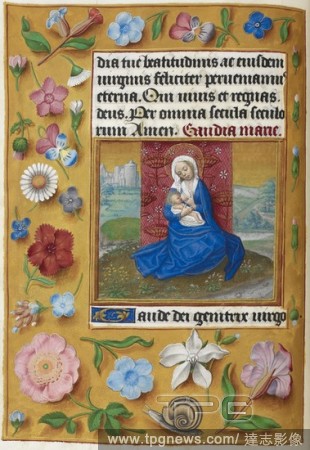 dia tue beatitudinis ac eiusdem
uirginis feliciter perueniamus
eterna. Qui uiuis et regnas
deus. Per omnia secula seculo
rum Amen. Gaudia marie.
Gaude dei genitrix uirgo
TPG
www.tpgnews.com/達志影像